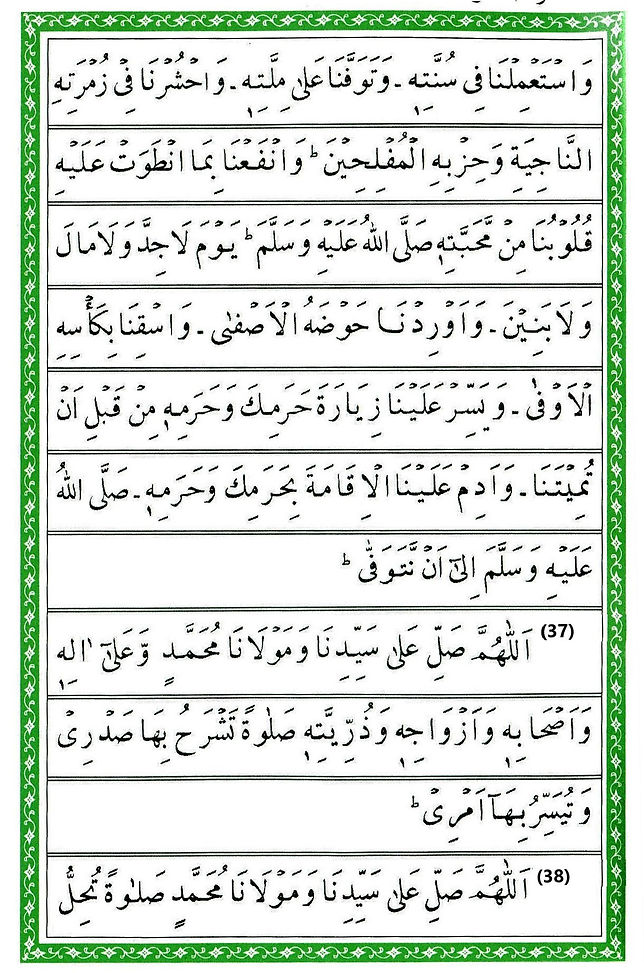 وَاسْتَعْمِلْنَا فِیْ سُنَّتِهٖ ـ وَتَوَفَّنَا عَلٰی مِلَّتِهٖ ـ وَاحْشُرْنَا فِیْ زُمْرَتِهِ
النَّاجِیَةِ وَحِزْبِهِ الْمُفْلِحِیْنَ ؕ وَانْفَعْنَا بِمَا انْطَوَتْ عَلَیْهِ
قُلُوْبُنَا مِنْ مَّحَبَّتِهٖ صَلَّی اللهُ عَلَیْهِ وَسَلَّمَ ؕ یَوْمَ لَا جِدَّ وَلَا مَالَ
وَلَا بَنِیْنَ ـ وَاَوْرِدْنَا حَوْضَهُ الْاَصْفٰی ـ وَاسْقِنَا بِكَأْسِهِ
الْاَوْفٰی ـ وَیَسِّرْ عَلَیْنَا زِیَارَةَ حَرَمِكَ وَحَرَمِهٖ مِنْ قَبْلِ اَنْ
تُمِیْتَنَا ـ وَاَدِمْ عَلَیْنَا الْاِقَامَةَ بِحَرَمِكَ وَحَرَمِهٖ ـ صَلَّی اللهُ
عَلَیْهِ وَسَلَّمَ اِلٰۤی اَنْ نَّتَوَفّٰی ؕ
(37) اَللّٰهُمَّ صَلِّ عَلٰی سَیِّدِنَا وَمَوْلَانَا مُحَمَّدٍ وَّعَلٰۤی اٰلِهٖ
وَاَصْحَابِهٖ وَاَزْوَاجِهٖ وَذُرِّیَّتِهٖ صَلٰوةً تَشْرَحُ بِهَا صَدْرِیْ
وَتُیَسِّرُ بِهَاۤ اَمْرِیْ ؕ
(38) اَللّٰهُمَّ صَلِّ عَلٰی سَیِّدِنَا وَمَوْلَانَا مُحَمَّدٍ صَلٰوةً تُحِلُّ